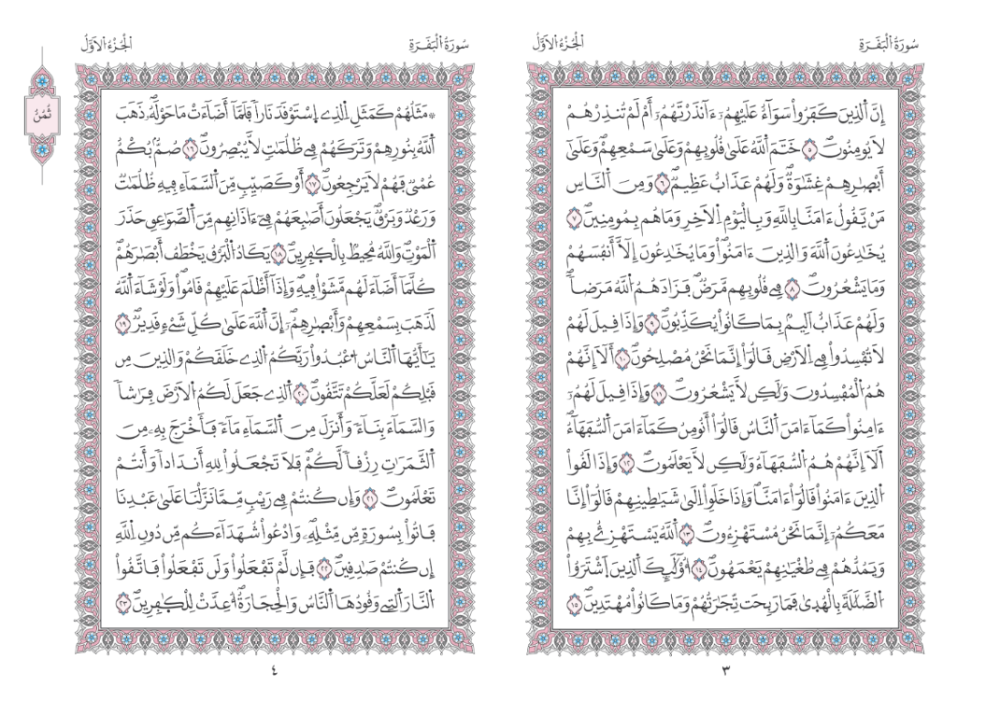 سُورَةُ الْبَقَرَةِ
الْجُزْءُ الْأَوَّلُ
إِنَّ اَ۬لذِينَ كَفَرُواْ سَوَآءٌ عَلَيْهِمُۥٓ ءَآنذَرْتَهُمُۥٓ أَمْ لَمْ تُنذِرْهُمْ
لَا يُومِنُونَۖ ٥ خَتَمَ اَ۬للَّهُ عَلَىٰ قُلُوبِهِمْ وَعَلَىٰ سَمْعِهِمْۖ وَعَلَىٰٓ
أَبْصٰ۪رِهِمْ غِشَٰوَةٞۖ وَلَهُمْ عَذَابٌ عَظِيمٞۖ ٦ وَمِنَ اَ۬لنَّاسِ
مَنْ يَّقُولُ ءَامَنَّا بِاللَّهِ وَبِالْيَوْمِ اِ۬لَاخِرِ وَمَا هُم بِمُومِنِينَۖ ٧
يُخَٰدِعُونَ اَ۬للَّهَ وَالذِينَ ءَامَنُواْۖ وَمَا يُخَٰدِعُونَ إِلَّآ أَنفُسَهُمْ
وَمَا يَشْعُرُونَۖ ٨ فِے قُلُوبِهِم مَّرَضٞ فَزَادَهُمُ اُ۬للَّهُ مَرَضاٗۖ
وَلَهُمْ عَذَابٌ أَلِيمُۢ بِمَا كَانُواْ يُكَذِّبُونَۖ ٩ وَإِذَا قِيلَ لَهُمْ
لَا تُفْسِدُواْ فِے اِ۬لَارْضِ قَالُوٓاْ إِنَّمَا نَحْنُ مُصْلِحُونَۖ ١٠ أَلَآ إِنَّهُمْ
هُمُ اُ۬لْمُفْسِدُونَ وَلَٰكِن لَّا يَشْعُرُونَۖ ١١ وَإِذَا قِيلَ لَهُمُۥٓ
ءَامِنُواْ كَمَآ ءَامَنَ اَ۬لنَّاسُ قَالُوٓاْ أَنُومِنُ كَمَآ ءَامَنَ اَ۬لسُّفَهَآءُۖ
أَلَآ إِنَّهُمْ هُمُ اُ۬لسُّفَهَآءُ وَلَٰكِن لَّا يَعْلَمُونَۖ ١٢ وَإِذَا لَقُواْ
اُ۬لذِينَ ءَامَنُواْ قَالُوٓاْ ءَامَنَّاۖ وَإِذَا خَلَوِاْ اِلَىٰ شَيَٰطِينِهِمْ قَالُوٓاْ إِنَّا
مَعَكُمُۥٓ إِنَّمَا نَحْنُ مُسْتَهْزِءُونَۖ ١٣ اَ۬للَّهُ يَسْتَهْزِۓُ بِهِمْ
وَيَمُدُّهُمْ فِے طُغْيَٰنِهِمْ يَعْمَهُونَۖ ١٤ أُوْلَٰٓئِكَ اَ۬لذِينَ اَ۪شْتَرَوُاْ
اُ۬لضَّلَٰلَةَ بِالْهُد۪ىٰ فَمَا رَبِحَت تِّجَٰرَتُهُمْ وَمَا كَانُواْ مُهْتَدِينَۖ ١٥
٣
سُورَةُ الْبَقَرَةِ
الْجُزْءُ الْأَوَّلُ
ثُمُنُ
۞ مَثَلُهُمْ كَمَثَلِ اِ۬لذِے اِ۪سْتَوْقَدَ نَاراٗ فَلَمَّآ أَضَآءَتْ مَا حَوْلَهُۥ ذَهَبَ
اَ۬للَّهُ بِنُورِهِمْ وَتَرَكَهُمْ فِے ظُلُمَٰتٖ لَّا يُبْصِرُونَۖ ١٦ صُمُّۢ بُكْمٌ
عُمْيٞ فَهُمْ لَا يَرْجِعُونَۖ ١٧ أَوْ كَصَيِّبٖ مِّنَ اَ۬لسَّمَآءِ فِيهِ ظُلُمَٰتٞ
وَرَعْدٞ وَبَرْقٞ يَجْعَلُونَ أَصَٰبِعَهُمْ فِےٓ ءَاذَانِهِم مِّنَ اَ۬لصَّوَٰعِقِ حَذَرَ
اَ۬لْمَوْتِۖ وَاللَّهُ مُحِيطُۢ بِالْكٰ۪فِرِينَۖ ١٨ يَكَادُ اُ۬لْبَرْقُ يَخْطَفُ أَبْصَٰرَهُمْۖ
كُلَّمَآ أَضَآءَ لَهُم مَّشَوْاْ فِيهِۖ وَإِذَآ أَظْلَمَ عَلَيْهِمْ قَامُواْۖ وَلَوْ شَآءَ اَ۬للَّهُ
لَذَهَبَ بِسَمْعِهِمْ وَأَبْصٰ۪رِهِمُۥٓۖ إِنَّ اَ۬للَّهَ عَلَىٰ كُلِّ شَےْءٖ قَدِيرٞۖ ١٩
يَٰٓأَيُّهَا اَ۬لنَّاسُ اُ۟عْبُدُواْ رَبَّكُمُ اُ۬لذِے خَلَقَكُمْ وَالذِينَ مِن
قَبْلِكُمْ لَعَلَّكُمْ تَتَّقُونَۖ ٢٠ اَ۬لذِے جَعَلَ لَكُمُ اُ۬لَارْضَ فِرَٰشاٗ
وَالسَّمَآءَ بِنَآءٗ وَأَنزَلَ مِنَ اَ۬لسَّمَآءِ مَآءٗ فَأَخْرَجَ بِهِۦ مِنَ
اَ۬لثَّمَرَٰتِ رِزْقاٗ لَّكُمْۖ فَلَا تَجْعَلُواْ لِلهِ أَندَاداٗ وَأَنتُمْ
تَعْلَمُونَۖ ٢١ وَإِن كُنتُمْ فِے رَيْبٖ مِّمَّا نَزَّلْنَا عَلَىٰ عَبْدِنَا
فَاتُواْ بِسُورَةٖ مِّن مِّثْلِهِۦ وَادْعُواْ شُهَدَآءَكُم مِّن دُونِ اِ۬للَّهِ
إِن كُنتُمْ صَٰدِقِينَۖ ٢٢ فَإِن لَّمْ تَفْعَلُواْ وَلَن تَفْعَلُواْ فَاتَّقُواْ
اُ۬لنَّارَ اَ۬لتِے وَقُودُهَا اَ۬لنَّاسُ وَالْحِجَارَةُۖ أُعِدَّتْ لِلْكٰ۪فِرِينَۖ ٢٣
٤